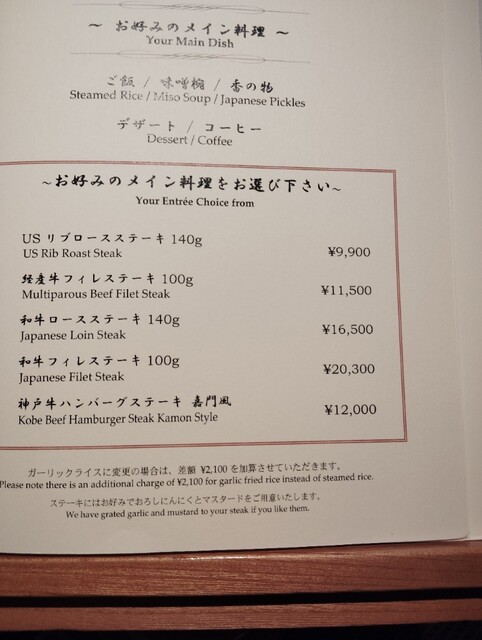 ～ お好みのメイン料理 ～
Your Main Dish
ご飯 / 味噌椀 / 香の物
Steamed Rice / Miso Soup / Japanese Pickles
デザート / コーヒー
Dessert / Coffee
～お好みのメイン料理をお選び下さい～
Your Entrée Choice from
US リブロースステーキ 140g
US Rib Roast Steak
¥9,900
経産牛フィレステーキ 100g
Multiparous Beef Filet Steak
¥11,500
和牛ロースステーキ 140g
Japanese Loin Steak
¥16,500
和牛フィレステーキ 100g
Japanese Filet Steak
¥20,300
神戸牛ハンバーグステーキ 嘉門風
Kobe Beef Hamburger Steak Kamon Style
¥12,000
ガーリックライスに変更の場合は、差額 ¥2,100 を加算させていただきます。
Please note there is an additional charge of ¥2,100 for garlic fried rice instead of steamed rice.
ステーキにはお好みでおろしにんにくとマスタードをご用意いたします。
We have grated garlic and mustard to your steak if you like them.